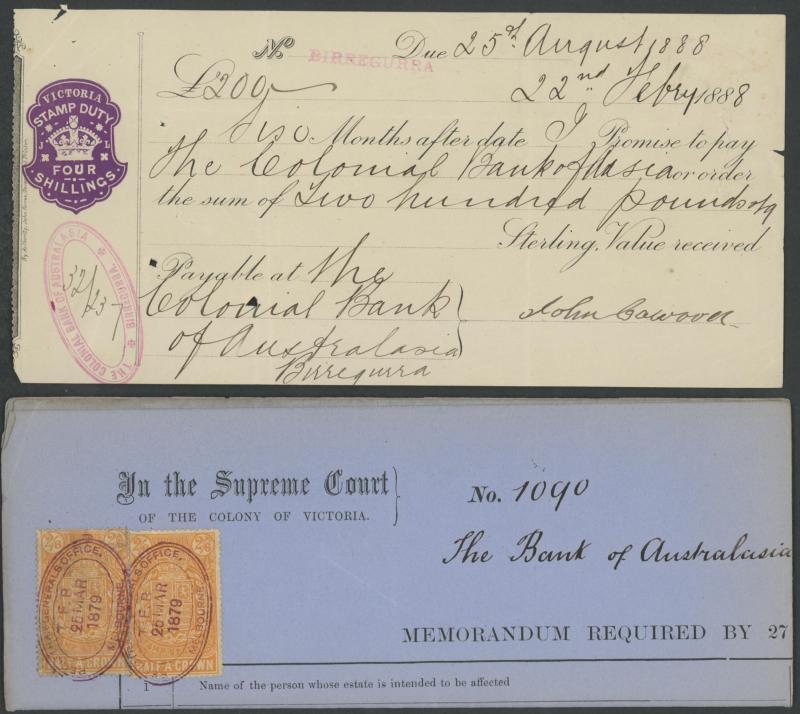 No BIRREGURRA Due 25th August 1888
£200 22nd Febry 1888
Six Months after date I Promise to pay
The Colonial Bank of A'asia or order
the sum of Two hundred pounds
Sterling, Value received
Payable at the
Colonial Bank
of Australasia
Birregurra
John Cawood
VICTORIA
STAMP DUTY
J L
FOUR
SHILLINGS.
THE COLONIAL BANK OF AUSTRALASIA
BIRREGURRA
32/237
In the Supreme Court
OF THE COLONY OF VICTORIA.
No. 1090
The Bank of Australasia
MEMORANDUM REQUIRED BY 27
1 Name of the person whose estate is intended to be affected
2/6 2/6
GENERAL'S OFFICE.
T.F.B.
25 MAR
1879
MELBOURNE.
HALF-A-CROWN
GENERAL'S OFFICE.
T.F.B.
25 MAR
1879
MELBOURNE.
HALF-A-CROWN